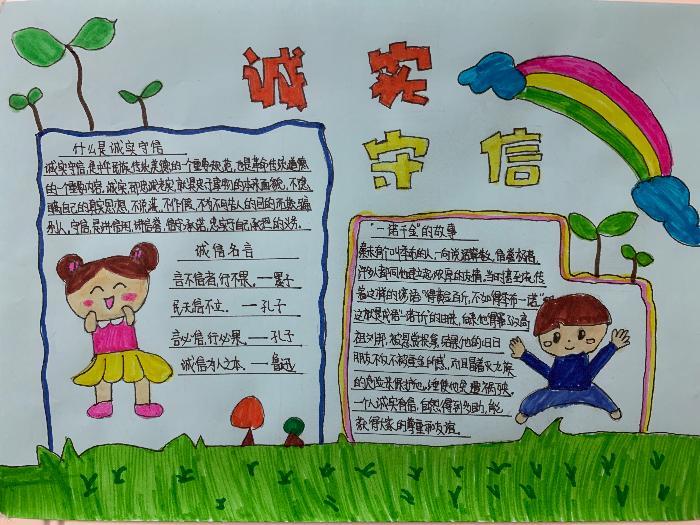 诚实
守信
什么是诚实守信
诚实守信,是中华民族传统美德的一个重要规范,也是革命传统道德
的一个重要内容。诚实,即忠诚老实,就是忠于事物的本来面貌,不隐
瞒自己的真实思想,不说谎,不作假,不为不可告人的目的而欺骗
别人。守信,是讲信用,讲信誉,信守承诺,忠实于自己承担的义务。
诚信名言
言不信者,行不果。——墨子
民无信不立。——孔子
言必信,行必果。——孔子
诚信为人之本。——鲁迅
“一诺千金”的故事
秦末有个叫季布的人,一向说话算数,信誉极高,
许多人都同他建立起了浓厚的友情。当时甚至流传
着这样的谚语:“得黄金百斤,不如得季布一诺”
这就是成语“一诺千金”的由来,后来他得罪了汉高
祖刘邦,被悬赏捉拿。结果他的旧日
朋友不仅不被重金所惑,而且冒着灭九族
的危险来保护他,终使他免遭祸殃。
一个人诚实有信,自然得到多助,能
获得大家的尊重和友谊。